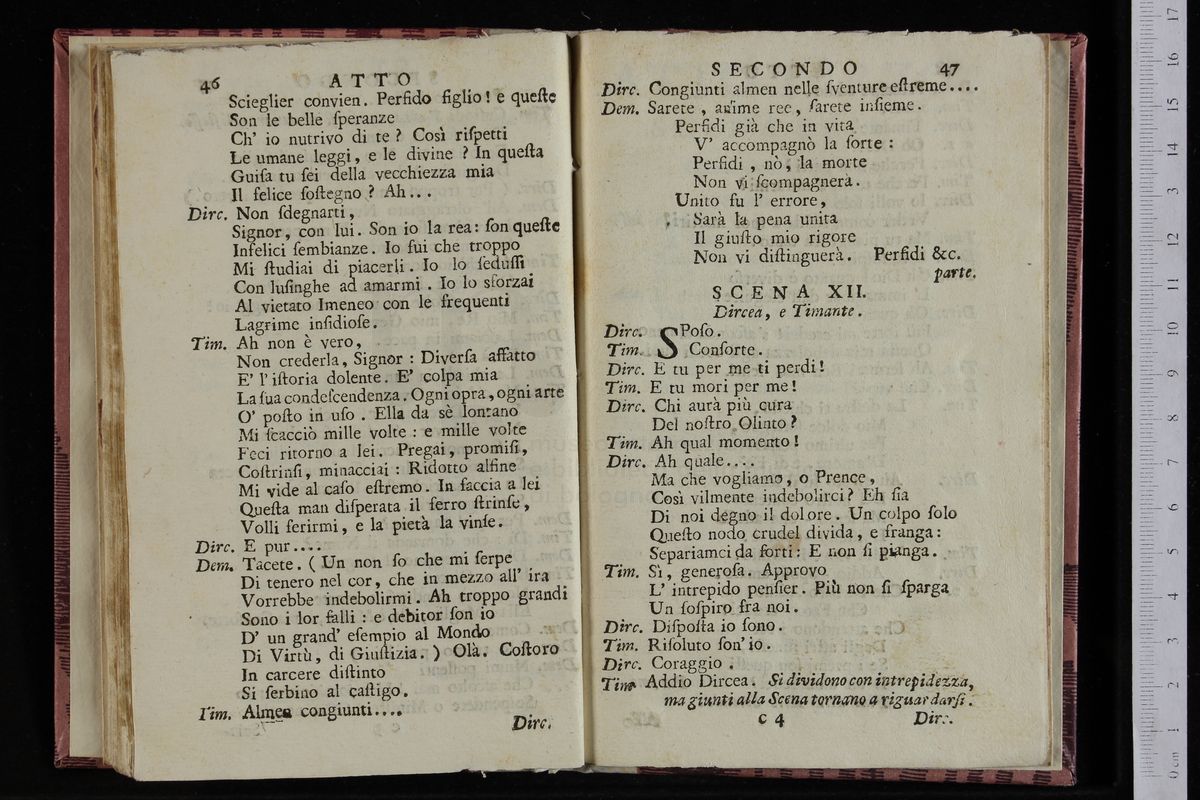 46 ATTO
Scieglier convien. Perfido figlio! e queſte
Son le belle ſperanze
Ch' io nutrivo di te? Così riſpetti
Le umane leggi, e le divine? In queſta
Guiſa tu ſei della vecchiezza mia
Il felice ſoſtegno? Ah...
Dirc. Non ſdegnarti,
Signor, con lui. Son io la rea: ſon queſte
Infelici ſembianze. Io fui che troppo
Mi ſtudiai di piacerli. Io lo ſeduſſi
Con luſinghe ad amarmi. Io lo sforzai
Al vietato Imeneo con le frequenti
Lagrime inſidioſe.
Tim. Ah non è vero,
Non crederla, Signor: Diverſa affatto
E' l' iſtoria dolente. E' colpa mia
La ſua condeſcendenza. Ogni opra, ogni arte
O' poſto in uſo. Ella da sè lontano
Mi ſcacciò mille volte: e mille volte
Feci ritorno a lei. Pregai, promiſi,
Coſtrinſi, minacciai: Ridotto alfine
Mi vide al caſo eſtremo. In faccia a lei
Queſta man diſperata il ferro ſtrinſe,
Volli ferirmi, e la pietà la vinſe.
Dirc. E pur....
Dem. Tacete. (Un non ſo che mi ſerpe
Di tenero nel cor, che in mezzo all' ira
Vorrebbe indebolirmi. Ah troppo grandi
Sono i lor falli: e debitor ſon io
D' un grand' eſempio al Mondo
Di Virtù, di Giuſtizia.) Olà. Coſtoro
In carcere diſtinto
Si ſerbino al caſtigo.
Tim. Almen congiunti....
Dirc.
SECONDO 47
Dirc. Congiunti almen nelle ſventure eſtreme....
Dem. Sarete, anime ree, ſarete inſieme.
Perfidi già che in vita
V' accompagnò la ſorte:
Perfidi, nò, la morte
Non vi ſcompagnerà.
Unito fu l' errore,
Sarà la pena unita
Il giuſto mio rigore
Non vi diſtinguerà. Perfidi &c.
parte.
SCENA XII.
Dircea, e Timante.
Dirc. SPoſo.
Tim. Conſorte.
Dirc. E tu per me ti perdi!
Tim. E tu mori per me!
Dirc. Chi aurà più cura
Del noſtro Olinto?
Tim. Ah qual momento!
Dirc. Ah quale....
Ma che vogliamo, o Prence,
Così vilmente indebolirci? Eh ſia
Di noi degno il dolore. Un colpo ſolo
Queſto nodo crudel divida, e franga:
Separiamci da forti: E non ſi pianga.
Tim. Sì, generoſa. Approvo
L' intrepido penſier. Più non ſi ſparga
Un ſoſpiro fra noi.
Dirc. Diſpoſta io ſono.
Tim. Riſoluto ſon' io.
Dirc. Coraggio.
Tim. Addio Dircea. Si dividono con intrepidezza,
ma giunti alla Scena tornano a riguardarſi.
C 4 Dirc.